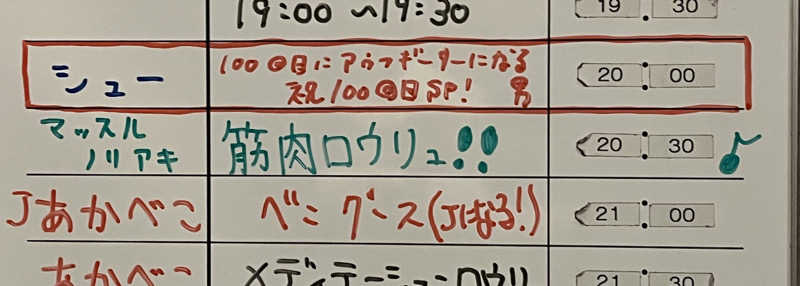 19:00 〜19:30
19:30
シュー
100回目にアウフギーサーになる
祝100回目SP! 男
20:00
マッスル
ノリアキ
筋肉ロウリュ!!
20:30
Jあかべこ
ベニグース(Jになる!)
21:00
あかべこ
メディテーションロウリ
21:30